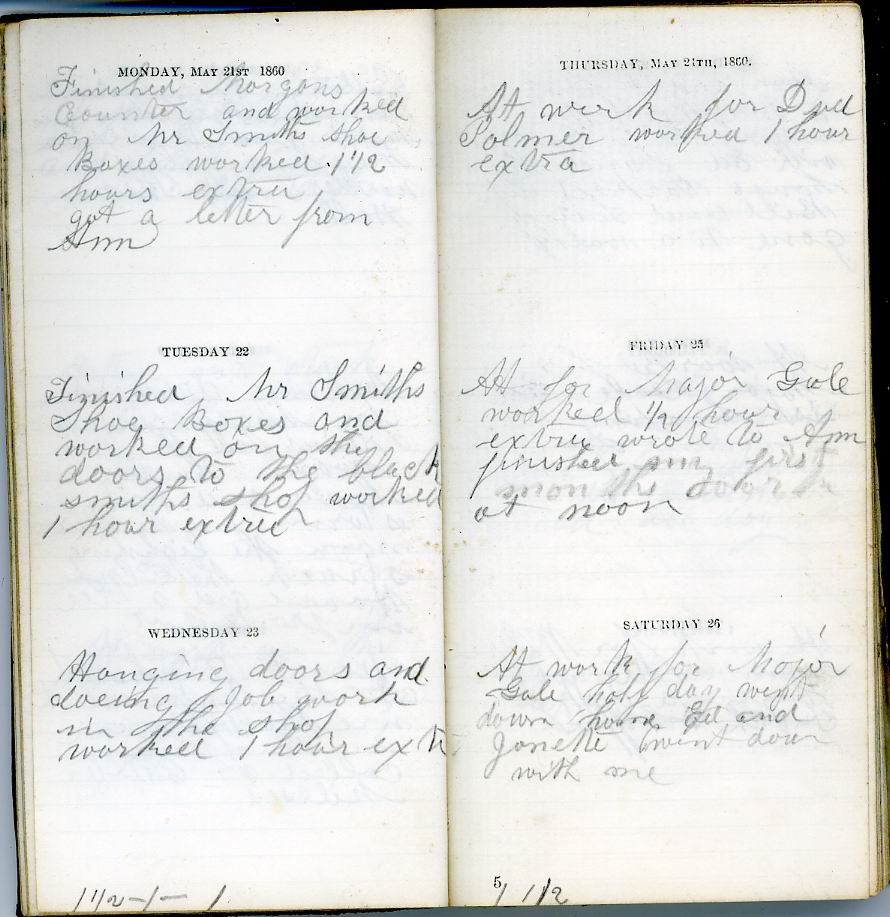 MONDAY, MAY 21ST 1860
Finished Morgans
Counter and worked
on Mr Smiths Shoe
Boxes worked 1 1/2
hours extra
got a letter from
Ann
TUESDAY 22
Finished Mr Smiths
Shoe Boxes and
worked on the
doors to the black
smiths shop worked
1 hour extra
WEDNESDAY 23
Hanging doors and
doeing Job work
in the shop
worked 1 hour extr
1 1/2 - 1 - 1
THURSDAY, MAY 24TH, 1860.
At work for
Palmer worked 1 hour
extra
FRIDAY 25
At for Major Gale
worked 1/2 hour
extra wrote to Ann
finished my first
months
at noon
SATURDAY 26
At work for Major
Gale half day went
down home Ed and
Janette went down
with me
5
1 1/2